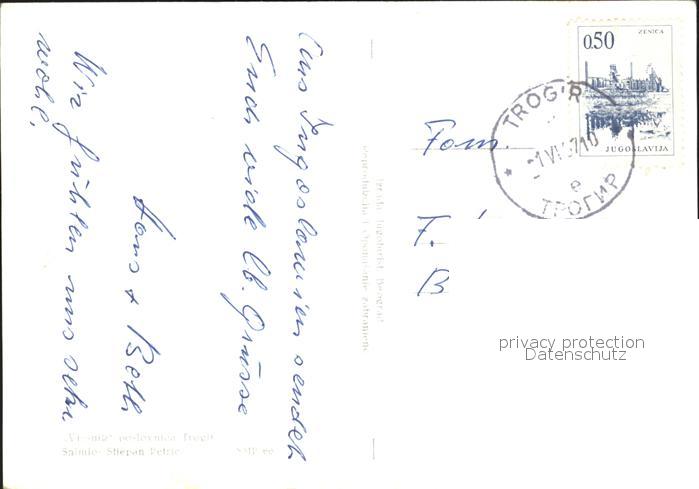 Aus Jugoslawien sendet
Euch viele lb. Grüsse
Hans + Beth
Wir fühlen uns sehr
wohl.
Fam.
F.
B
0.50
ZENICA
JUGOSLAVIJA
TROGIR
ТРОГИР
е
Izdaje Jugoturist Beograd
poslovnica Trogir
Snimio Stjepan Petric
privacy protection
Datenschutz